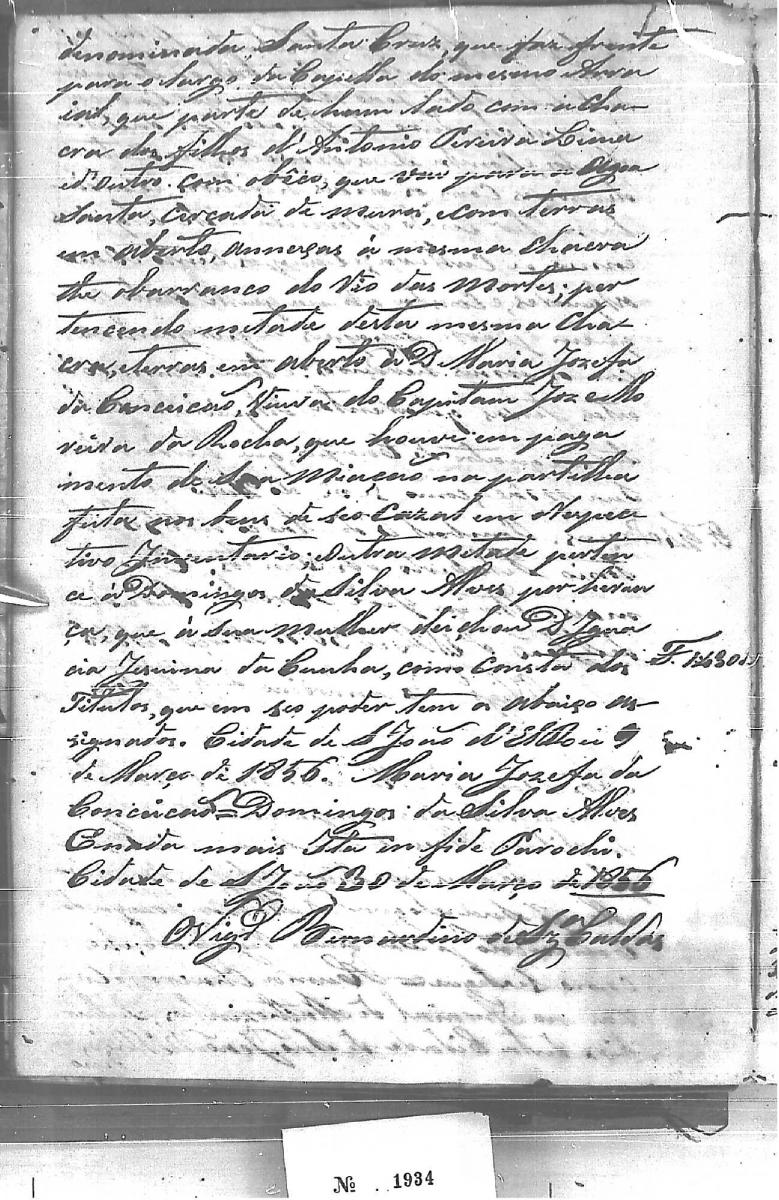 denominada Santa Cruz, que faz frente
para o largo da Capella do mesmo Arra
ial, que parte de hum lado com a cha-
cra dos filhos d'Antonio Pereira Lima
e d'outro com obêco, que vai para a Agoa
Santa, cercada de muros, e com terras
em aberto, annexas á mesma chacra
the obarranco do Rio das Mortes; per
tencendo metade desta mesma cha-
cra, e terras em aberto a D. Maria Jozefa
da Conceicaõ, Viuva do Capitam Joze Mo
reira da Rocha, que houve em paga
mento de sua Miaçaõ na partilha
feita nos bens de seo Cazal em respec
tivo Inventario, eoutra metade perten
ce á Domingos da Silva Alves por heran
ça, que á sua mulher deichou D. Igna
cia Jesuina da Cunha, como consta dos
Titulos, que em seo poder tem os abaixo as-
signados. Cidade de S. João d'ElRei 9
de Março de 1856. Maria Jozefa da
Conceicaõ = Domingos da Silva Alves
Enada mais Ita in fide Parochi.
Cidade de S. João 30 de Março de 1856
O Vigrº Bernardino de Sza Caldas
Nº 1934